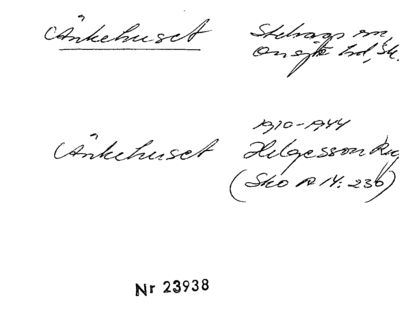 Änkehuset Stehags sn,
Onsjö hd, Sk.
1910-1944
Änkehuset Helgesson Rig
(Sko A 14: 236)
Nr 23938